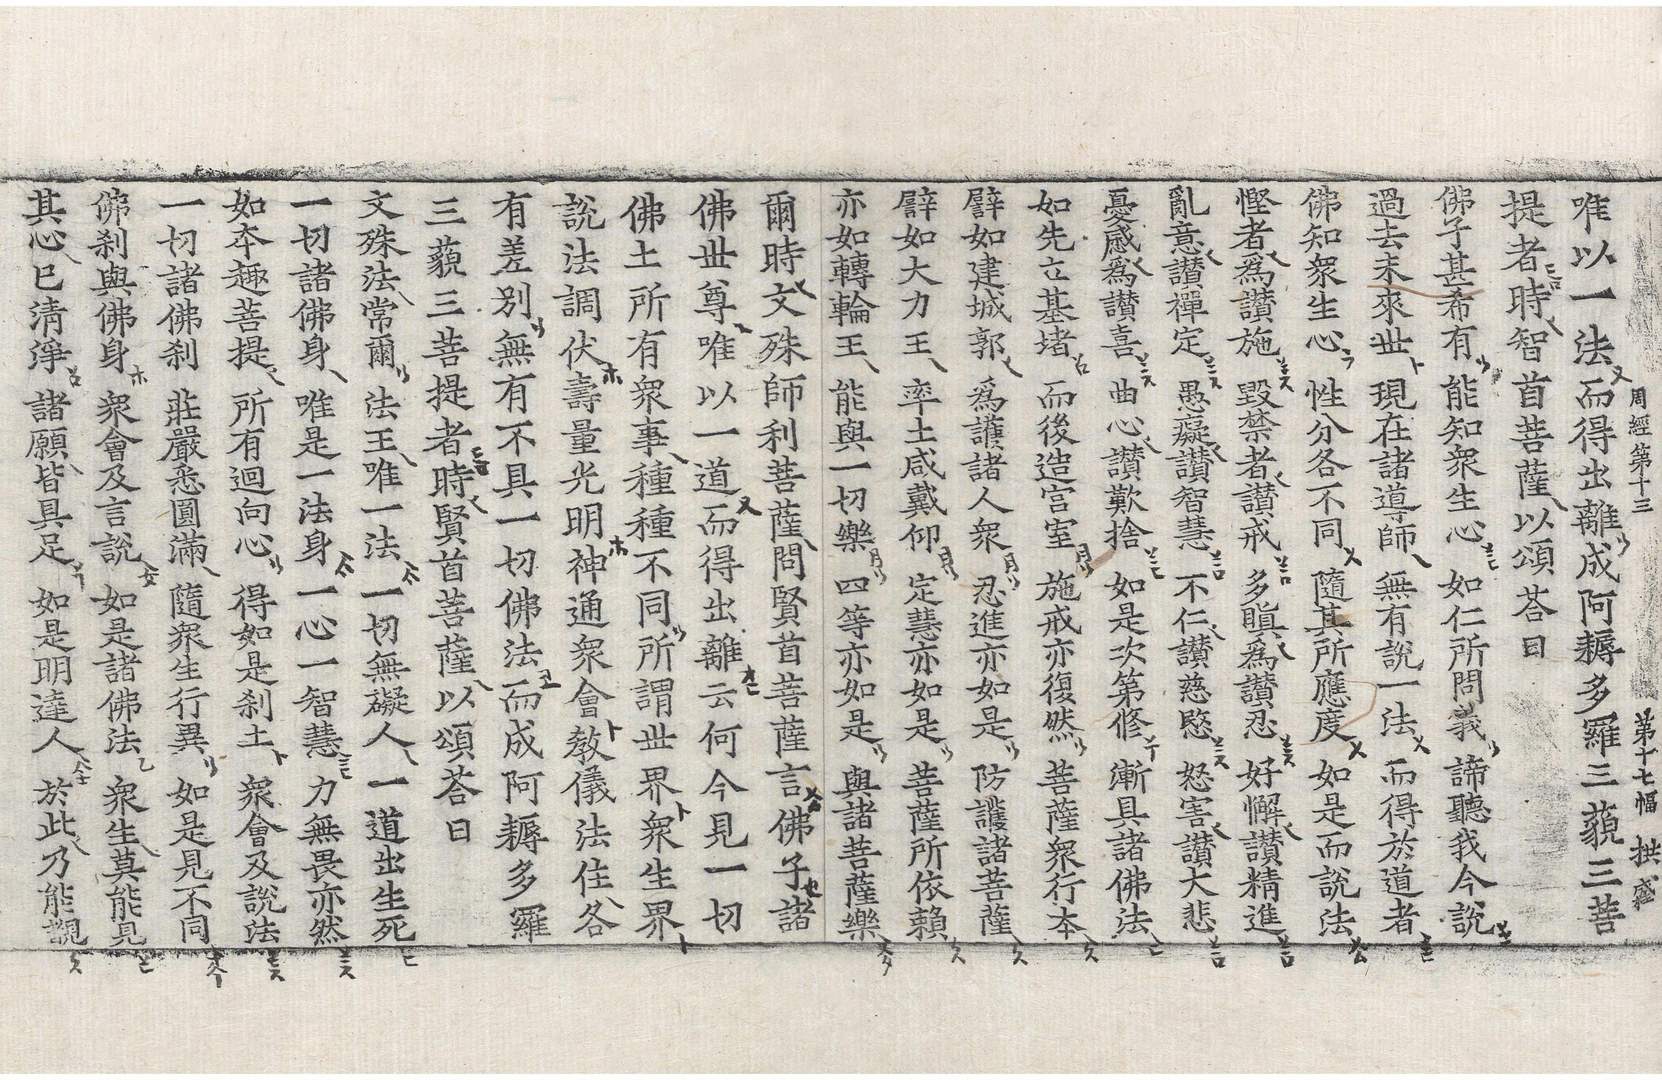 周經第十三　第十七幅　拱盛
唯以一法而得出離成阿耨多羅三藐三菩
提者時智首菩薩以頌荅曰
佛子甚希有　能知衆生心　如仁所問義　諦聽我今說
過去未來世　現在諸導師　無有說一法　而得於道者
佛知衆生心　性分各不同　隨其所應度　如是而說法
慳者爲讚施　毀禁者讚戒　多瞋爲讚忍　好懈讚精進
亂意讚禪定　愚癡讚智慧　不仁讚慈愍　怒害讚大悲
憂慼爲讚喜　曲心讚歎捨　如是次第修　漸具諸佛法
如先立基堵　而後造宮室　施戒亦復然　菩薩衆行本
譬如建城郭　爲護諸人衆　忍進亦如是　防護諸菩薩
譬如大力王　率土咸戴仰　定慧亦如是　菩薩所依賴
亦如轉輪王　能與一切樂　四等亦如是　與諸菩薩樂
爾時文殊師利菩薩問賢首菩薩言佛子諸
佛世尊唯以一道而得出離云何今見一切
佛土所有衆事種種不同所謂世界衆生界
說法調伏壽量光明神通衆會敎儀法住各
有差別無有不具一切佛法而成阿耨多羅
三藐三菩提者時賢首菩薩以頌荅曰
文殊法常爾　法王唯一法　一切無礙人　一道出生死
一切諸佛身　唯是一法身　一心一智慧　力無畏亦然
如本趣菩提　所有迴向心　得如是刹土　衆會及說法
一切諸佛刹　莊嚴悉圓滿　隨衆生行異　如是見不同
佛刹與佛身　衆會及言說　如是諸佛法　衆生莫能見
其心已清淨　諸願皆具足　如是明達人　於此乃能覩